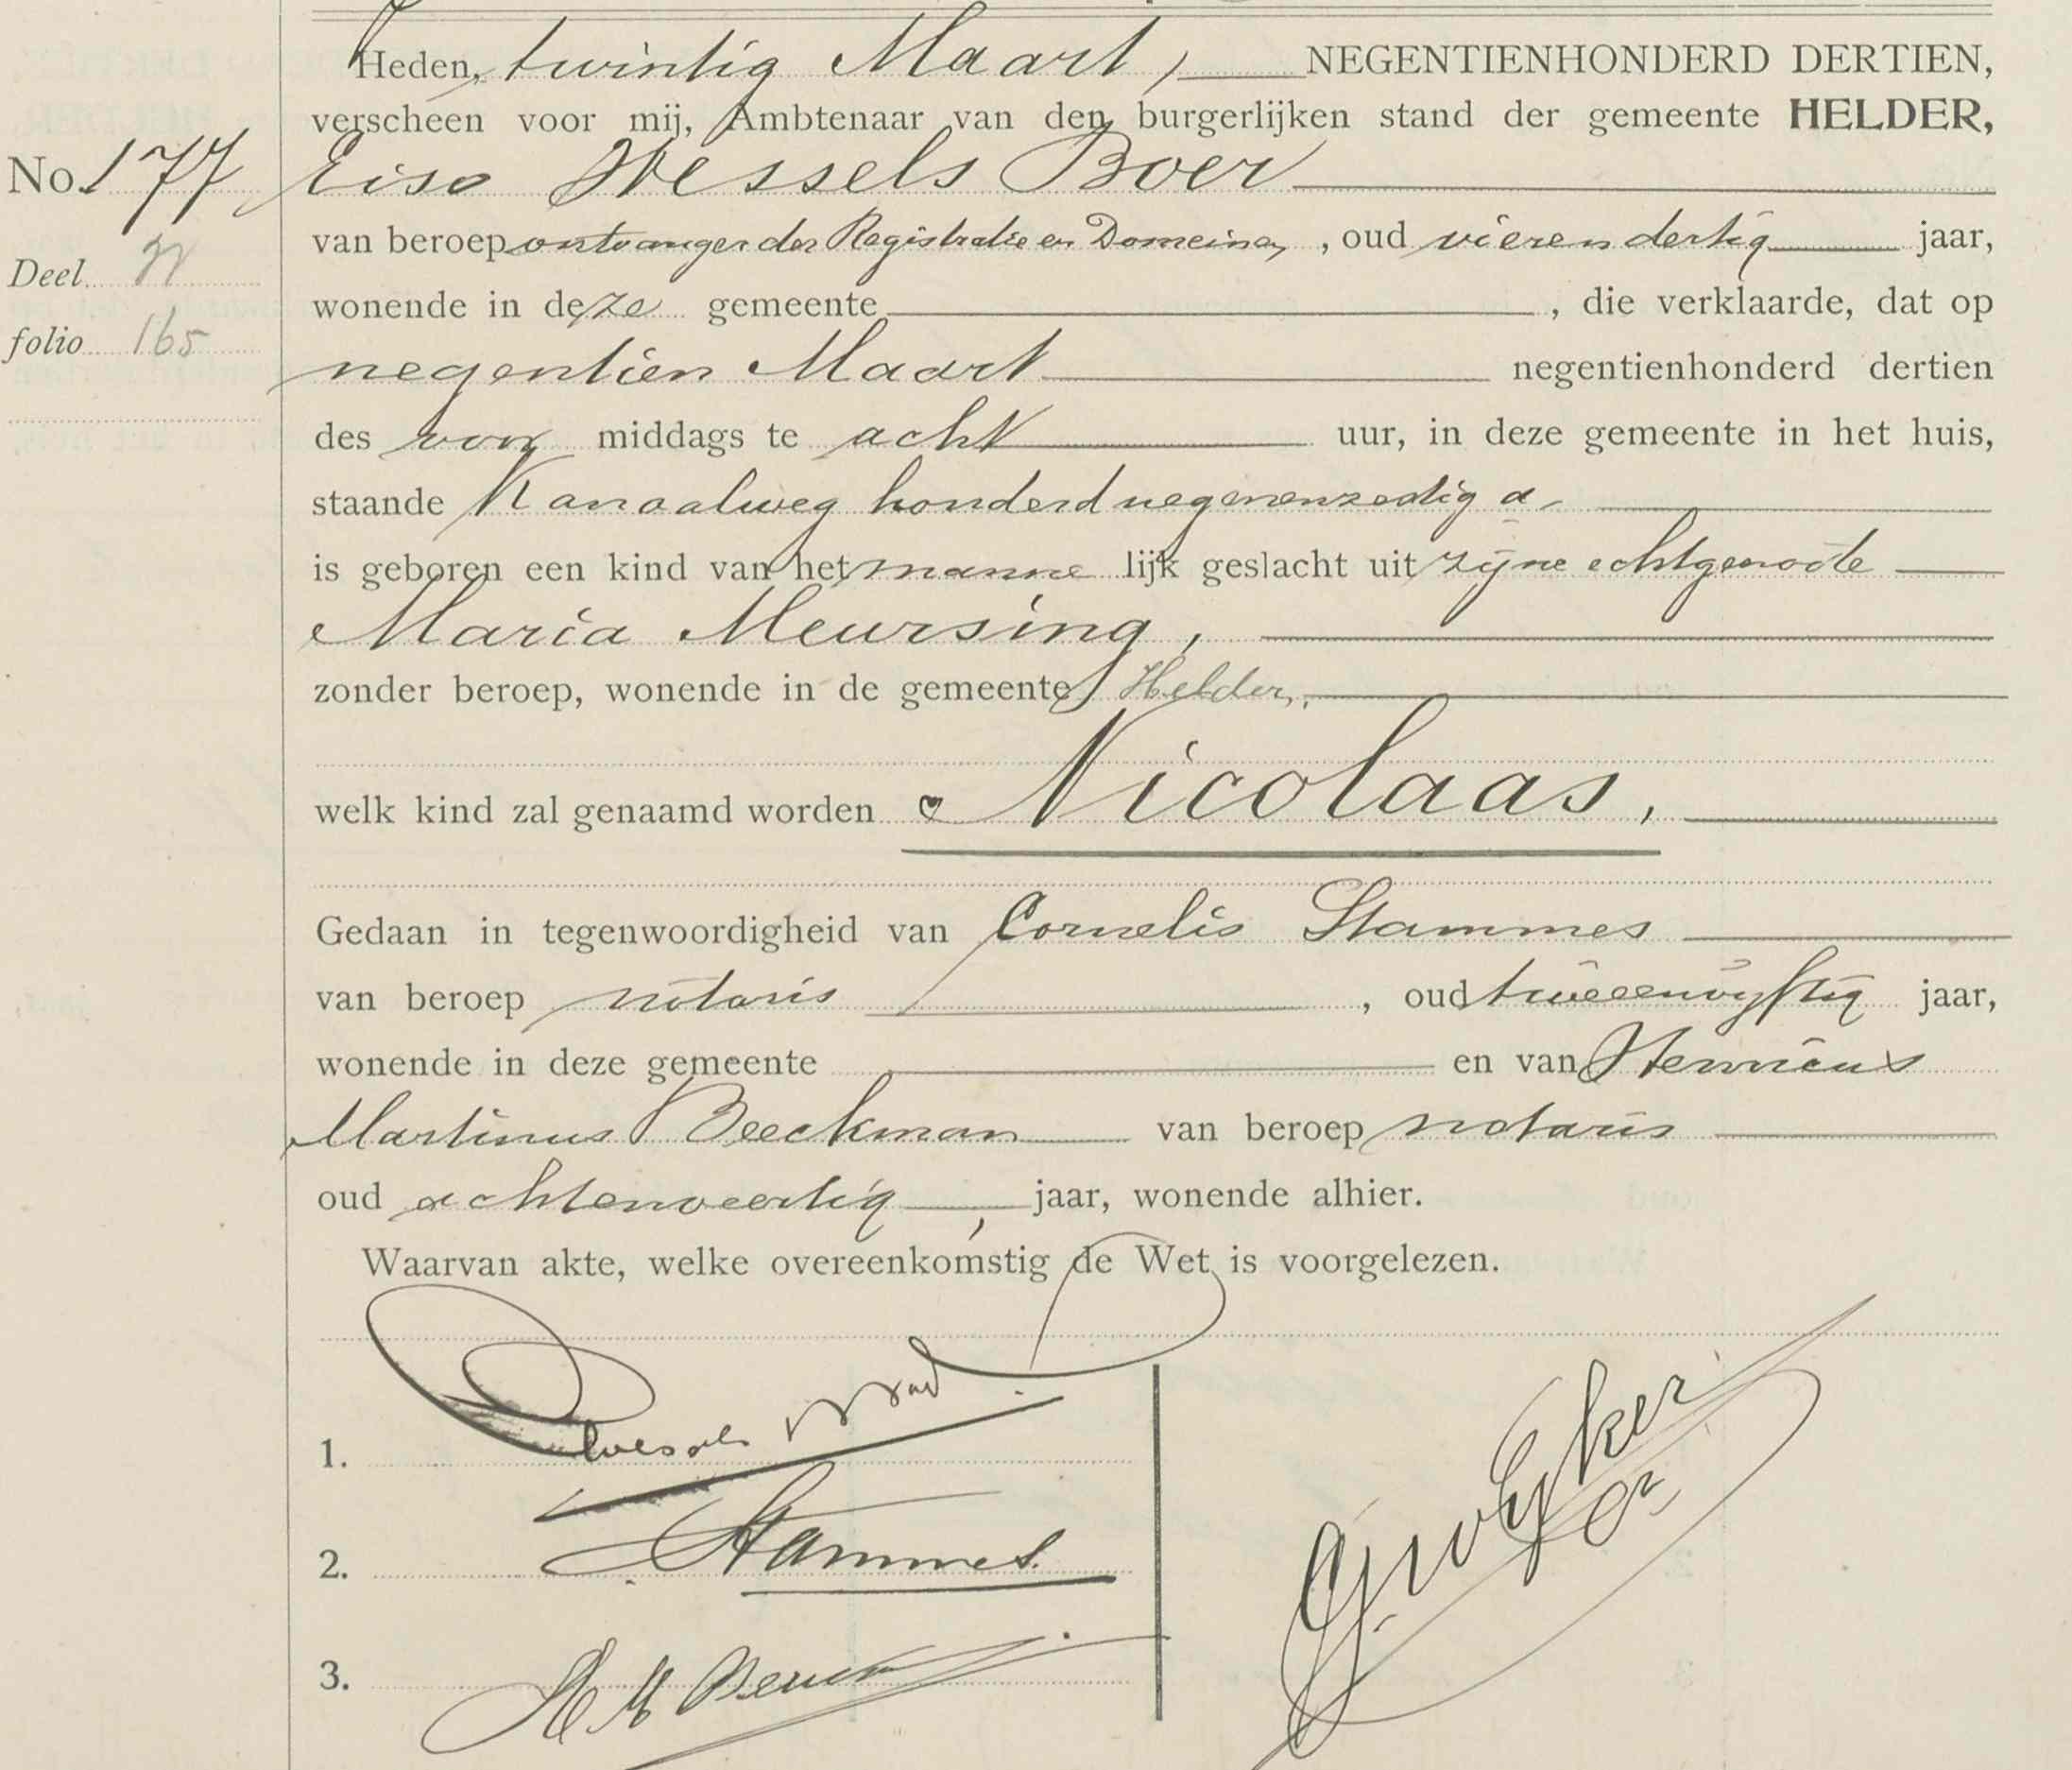 Heden, twintig Maart, NEGENTIENHONDERD DERTIEN,
verscheen voor mij, Ambtenaar van den burgerlijken stand der gemeente HELDER,
No. 177
Eiso Wessels Boer
van beroep ontvanger der Registratie en Domeinen, , oud vierendertig jaar,
Deel
folio 165
wonende in deze gemeente , die verklaarde, dat op
negentien Maart negentienhonderd dertien
des voor middags te acht uur, in deze gemeente in het huis,
staande Kanaalweg honderd negenenzestig a
is geboren een kind van het manne lijk geslacht uit zijne echtgenoote
Maria Meursing,
zonder beroep, wonende in de gemeente Helder,
welk kind zal genaamd worden Nicolaas,
Gedaan in tegenwoordigheid van Cornelis Stammes
van beroep notaris , oud tweeenvijftig jaar,
wonende in deze gemeente en van Henricus
Martinus Beeckman van beroep notaris
oud achtenveertig, jaar, wonende alhier.
Waarvan akte, welke overeenkomstig de Wet is voorgelezen.
1. Wessels Boer
2. Stammes
3. H M